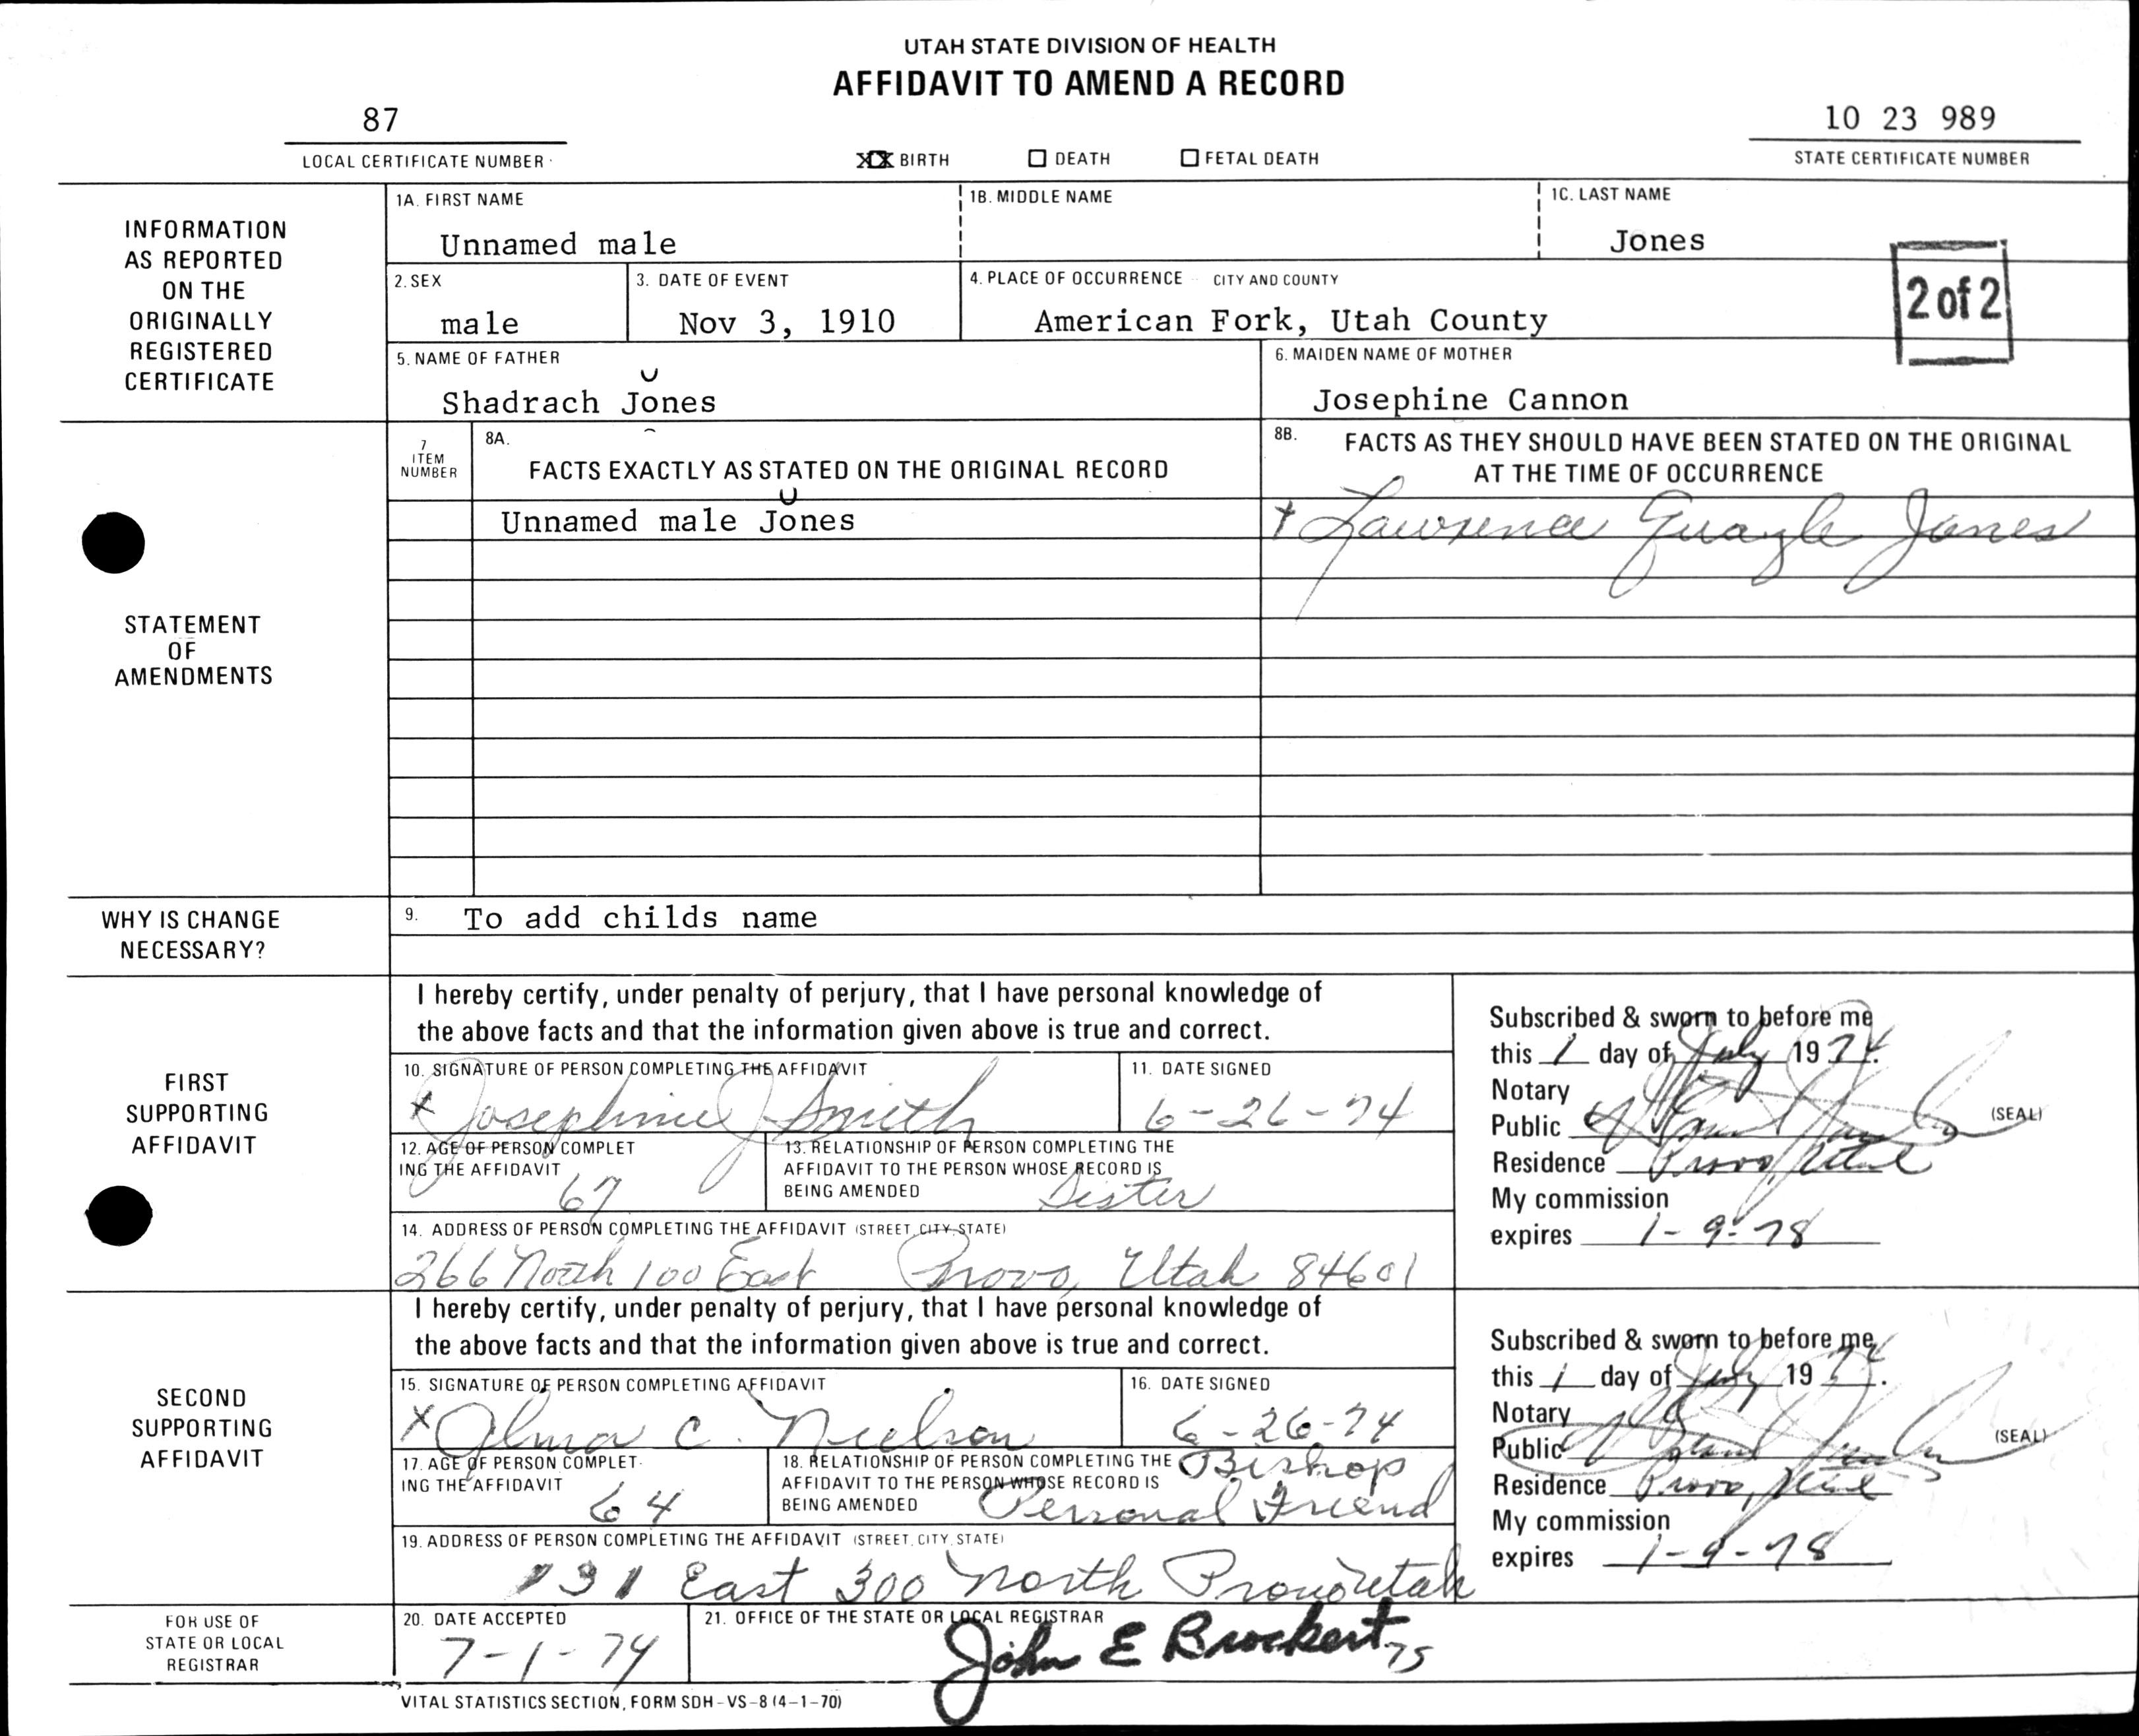 UTAH STATE DIVISION OF HEALTH
AFFIDAVIT TO AMEND A RECORD
87
10 23 989
LOCAL CERTIFICATE NUMBER
XX BIRTH
DEATH
FETAL DEATH
STATE CERTIFICATE NUMBER
INFORMATION
AS REPORTED
ON THE
ORIGINALLY
REGISTERED
CERTIFICATE
1A. FIRST NAME
Unnamed male
1B. MIDDLE NAME
1C. LAST NAME
Jones
2. SEX
male
3. DATE OF EVENT
Nov 3, 1910
4. PLACE OF OCCURRENCE CITY AND COUNTY
American Fork, Utah County
2 of 2
5. NAME OF FATHER
Shadrach Jones
6. MAIDEN NAME OF MOTHER
Josephine Cannon
STATEMENT
OF
AMENDMENTS
7
ITEM
NUMBER
8A.
FACTS EXACTLY AS STATED ON THE ORIGINAL RECORD
8B. FACTS AS THEY SHOULD HAVE BEEN STATED ON THE ORIGINAL
AT THE TIME OF OCCURRENCE
Unnamed male Jones
Lawrence Quayle Jones
WHY IS CHANGE
NECESSARY?
9. To add childs name
FIRST
SUPPORTING
AFFIDAVIT
I hereby certify, under penalty of perjury, that I have personal knowledge of
the above facts and that the information given above is true and correct.
10. SIGNATURE OF PERSON COMPLETING THE AFFIDAVIT
x Josephine J Smith
11. DATE SIGNED
6-26-74
12. AGE OF PERSON COMPLET
ING THE AFFIDAVIT
67
13. RELATIONSHIP OF PERSON COMPLETING THE
AFFIDAVIT TO THE PERSON WHOSE RECORD IS
BEING AMENDED
Sister
14. ADDRESS OF PERSON COMPLETING THE AFFIDAVIT (STREET, CITY, STATE)
266 North 100 East Provo, Utah 84601
Subscribed & sworn to before me
this 1 day of July 1974.
Notary
Public
(SEAL)
Residence Provo, Utah
My commission
expires 1-9-78
SECOND
SUPPORTING
AFFIDAVIT
I hereby certify, under penalty of perjury, that I have personal knowledge of
the above facts and that the information given above is true and correct.
15. SIGNATURE OF PERSON COMPLETING AFFIDAVIT
x Alma C. Nielson
16. DATE SIGNED
6-26-74
17. AGE OF PERSON COMPLET-
ING THE AFFIDAVIT
64
18. RELATIONSHIP OF PERSON COMPLETING THE
AFFIDAVIT TO THE PERSON WHOSE RECORD IS
BEING AMENDED
Bishop
Personal Friend
19. ADDRESS OF PERSON COMPLETING THE AFFIDAVIT (STREET, CITY, STATE)
131 East 300 North Provo Utah
Subscribed & sworn to before me
this 1 day of July 1974.
Notary
Public
(SEAL)
Residence Provo, Utah
My commission
expires 1-9-78
FOR USE OF
STATE OR LOCAL
REGISTRAR
20. DATE ACCEPTED
7-1-74
21. OFFICE OF THE STATE OR LOCAL REGISTRAR
John E Brockert
VITAL STATISTICS SECTION, FORM SDH-VS-8 (4-1-70)